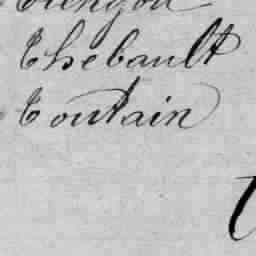 Thebault
Toutain